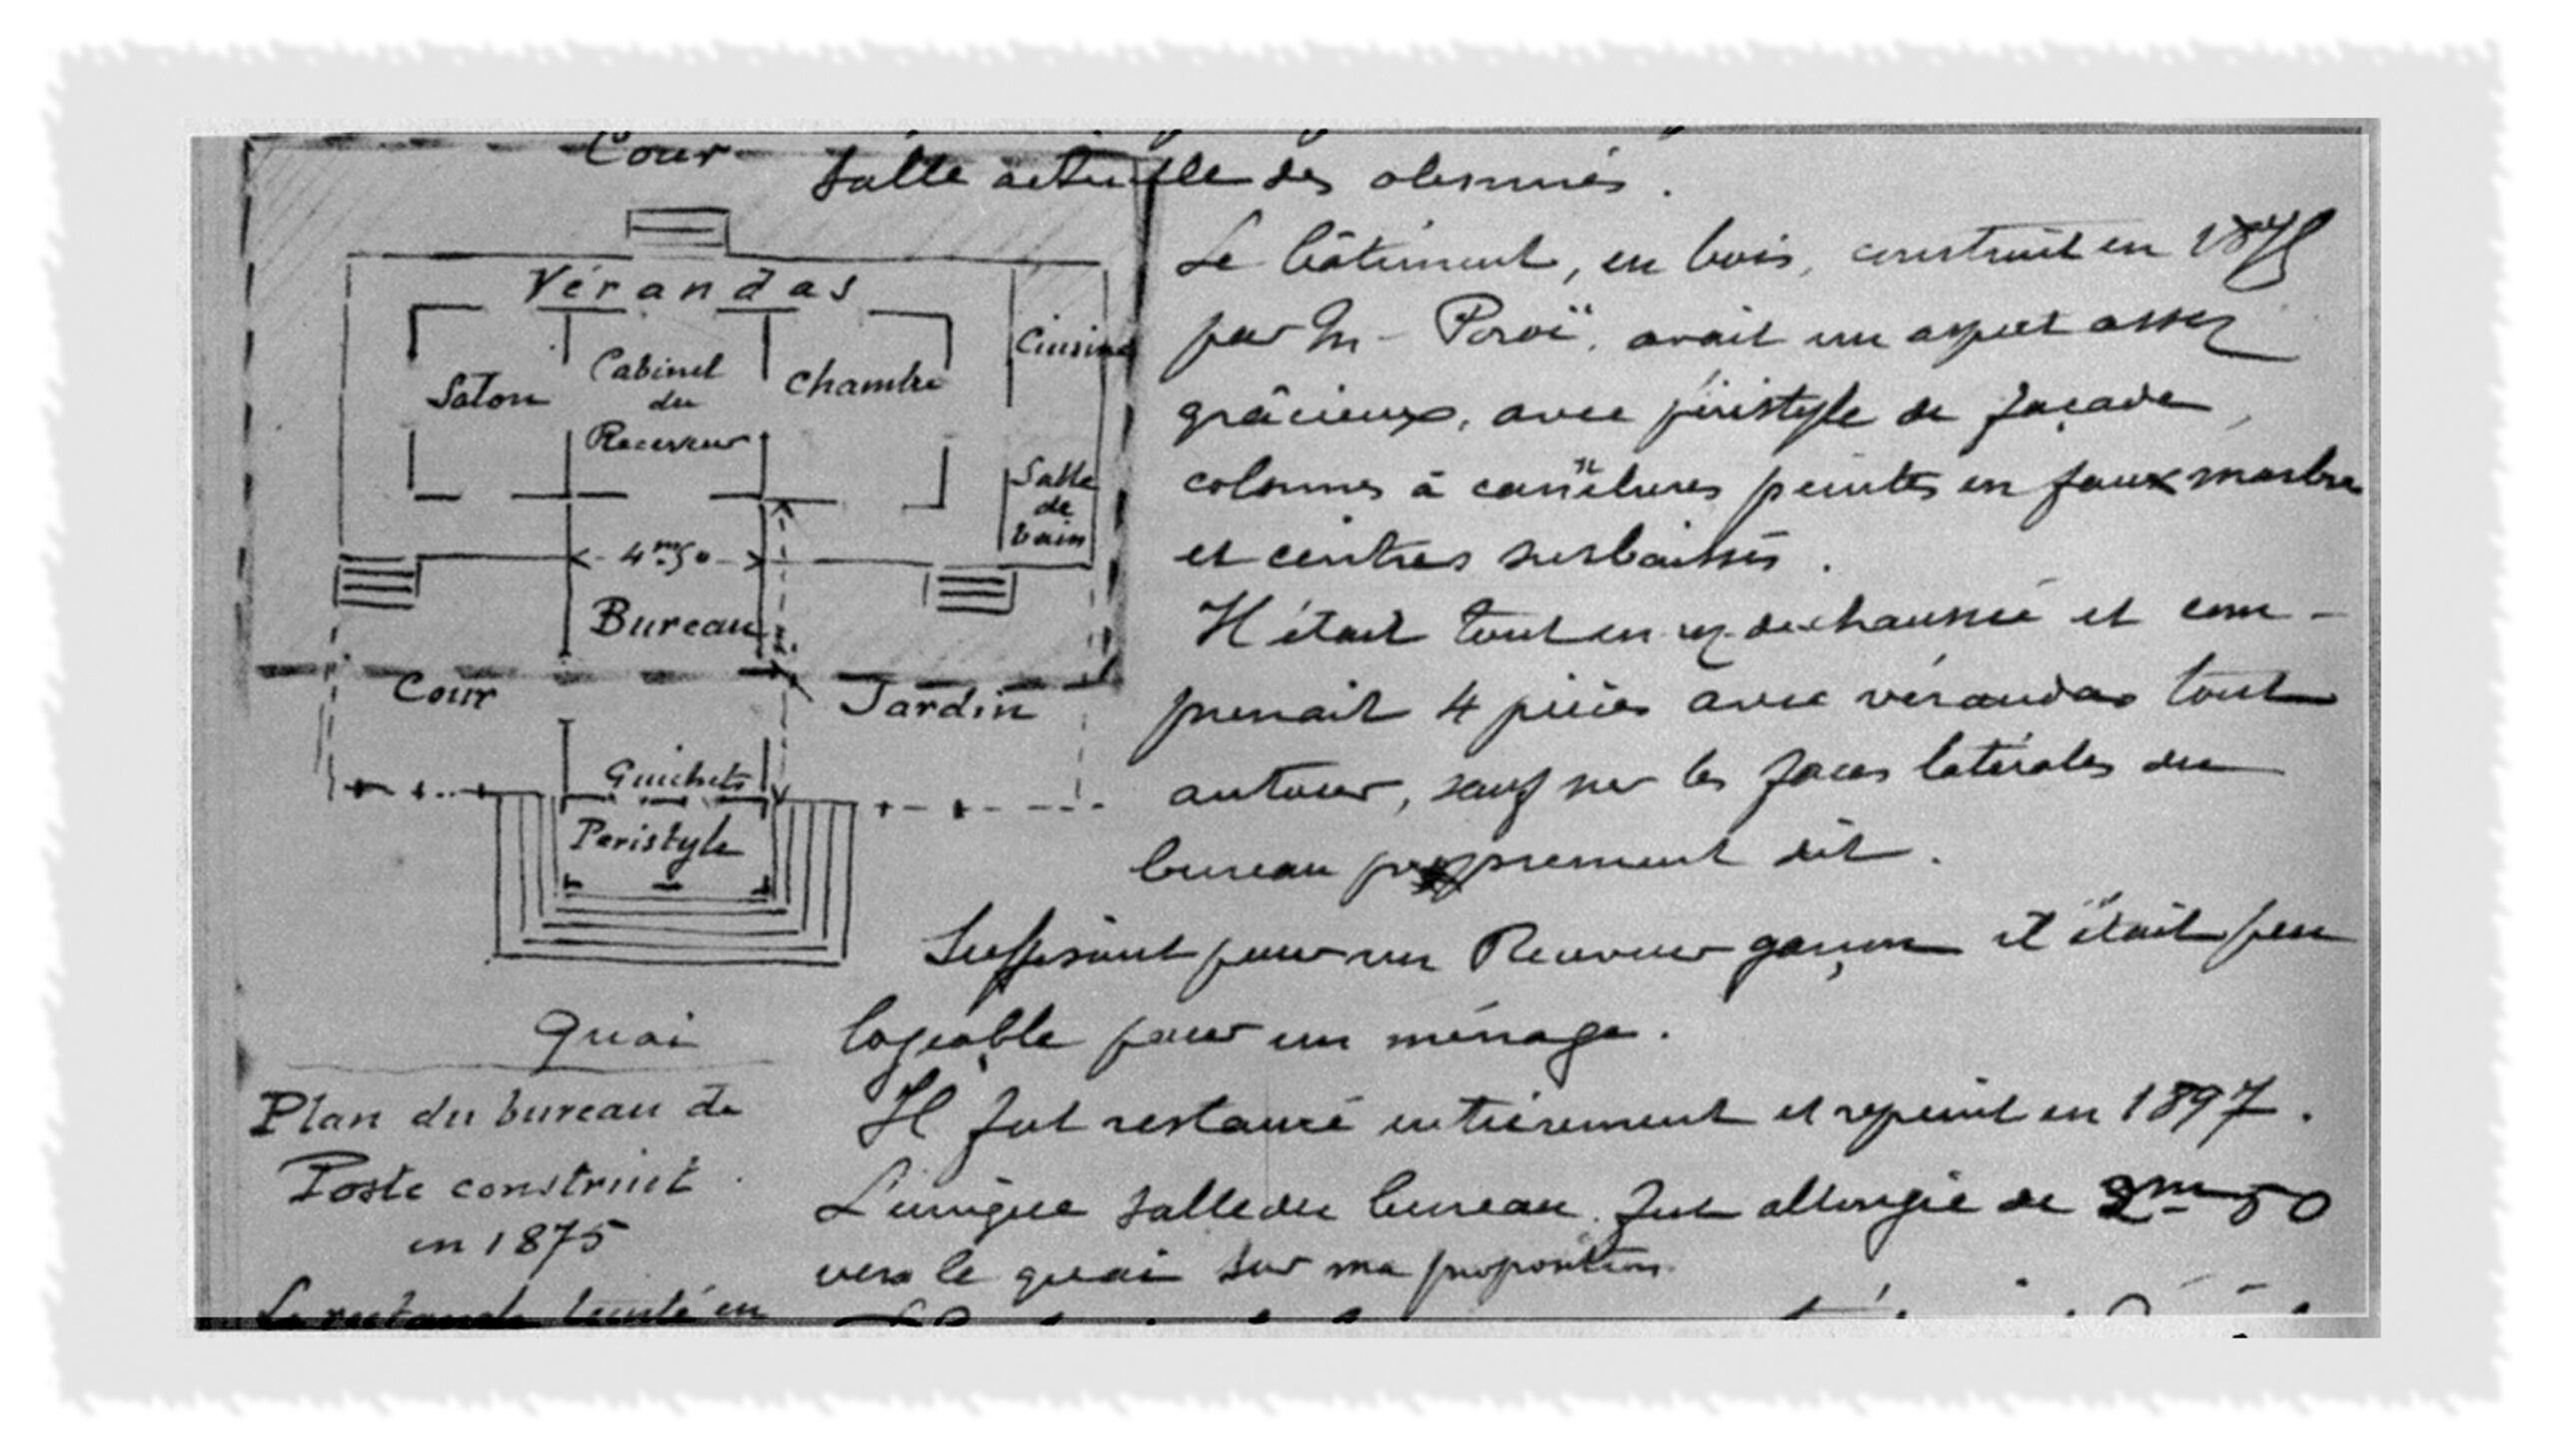 Cour
Salle actuelle des abonnés.
Vérandas
Salon
Cabinet
du
Receveur
Chambre
Cuisine
Salle
de
bain
4m50
Bureau
Cour
Jardin
Guichets
Peristyle
Quai
Plan du bureau de
Poste construit
en 1875
Le rectangle teinté en
Le bâtiment, en bois, construit en 1875
par M. Poroï, avait un aspect assez
grâcieux, avec péristyle de façade,
colonnes à cannelures peintes en faux marbre
et ceintres surbaissés.
Il était tout en rez-de-chaussée et com-
prenait 4 pièces avec vérandas tout
autour, sauf sur les faces latérales du
bureau proprement dit.
Suffisant pour un Receveur garçon il était peu
logeable pour un ménage.
Il fut restauré entièrement et repeint en 1897.
L'unique salle du bureau fut allongée de 2m50
vers le quai sur ma proposition